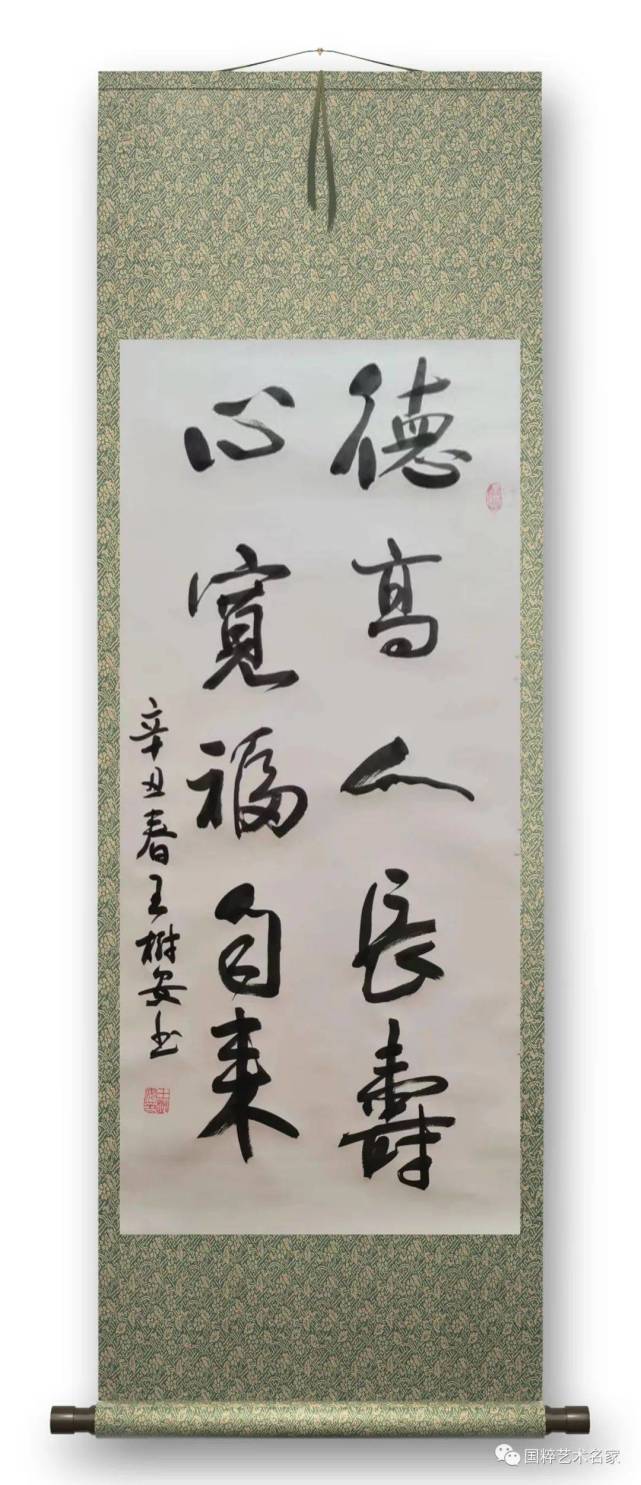 德高人长壽
心寬福自来
辛丑春王樹安书
国粹艺术名家